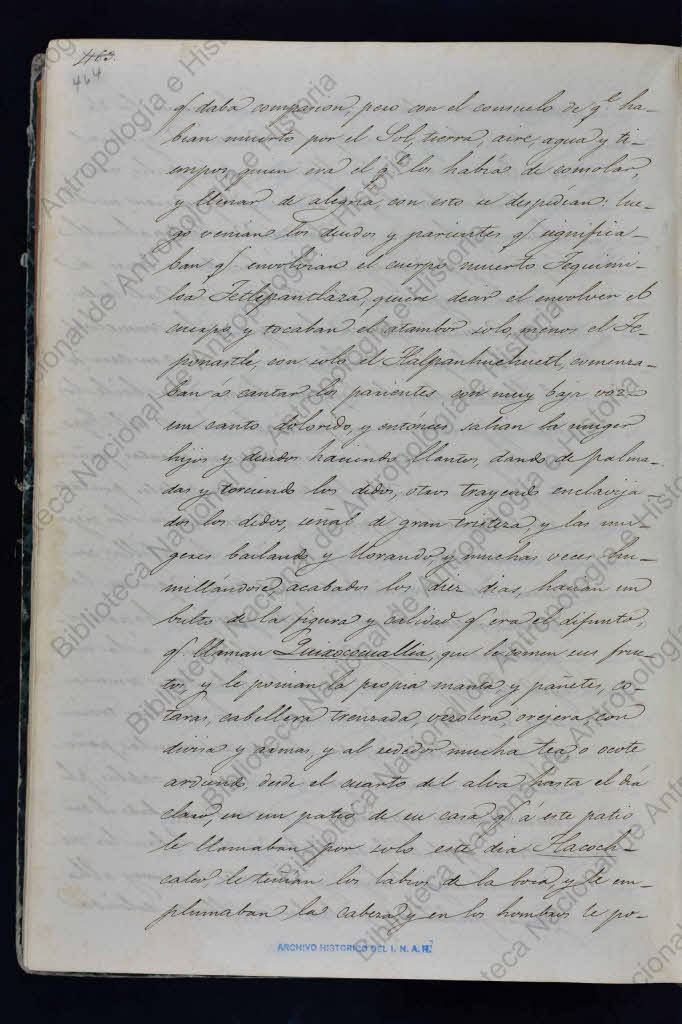 463.
464
q.e daba compasion, pero con el consuelo de q.e ha-
bian muerto por el Sol, tierra, aire, agua y ti-
empos, quien era el q.e los había de consolar,
y llenar de alegria, con esto se despedian: lue-
go venian los deudos y parientes q.e significa-
ban q.e envolvian el cuerpo muerto Tequimi-
loa Tetlepantlaza, quiere decir el envolver el
cuerpo, y tocaban el atambor solo, menos el Te-
ponastle, con solo el Tlalpanhuehuetl, comenza-
ban á cantar los parientes con muy baja voz
un canto dolorido, y entónces salian la muger
hijos y deudos haciendo llantos, dando de palma-
das y torciendo los dedos, otros trayendo enclavija-
dos los dedos, señal de gran tristeza, y las mu-
geres bailando y llorando, y muchas veces hu-
millándose, acabados los diez dias, hacian un
bulto de la figura y calidad q.e era el difunto,
q.e llaman Quixococuallia, que le comen sus fru-
tos, y le ponian la propia manta, y pañetes, co-
taras, cabellera trenzada, vezolera, orejera, con
divisa y armas, y al rededor mucha tea o ocote
ardiendo, desde el cuarto del alva hasta el dia
claro, en un patio de su casa q.e á este patio
le llamaban por solo este dia Tlacoch-
calco, le teñian los labios de la boca, y le em-
plumaban la cabeza, y en los hombros le po-
ARCHIVO HISTORICO DEL I. N. A. H.
Biblioteca Nacional de Antropología e Historia